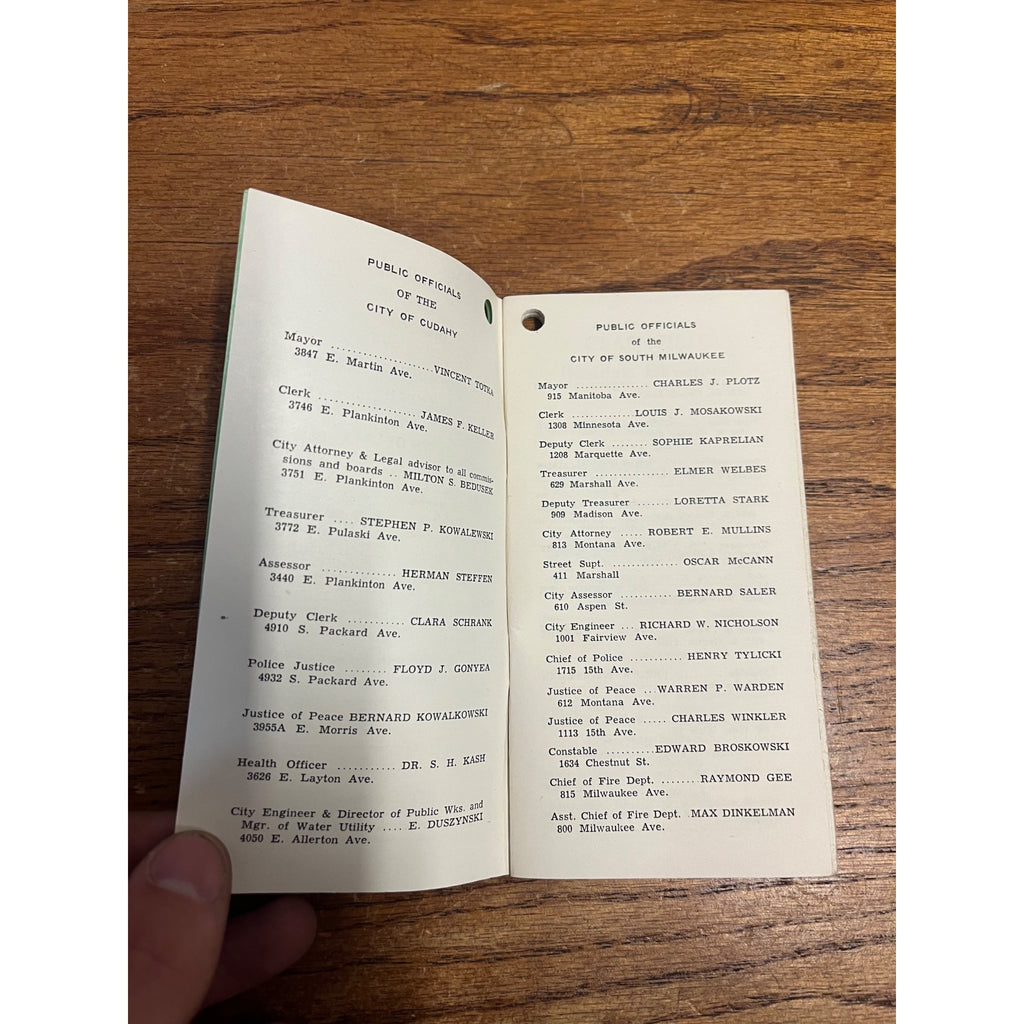 PUBLIC OFFICIALS
OF THE
CITY OF CUDAHY
Mayor ....................VINCENT TOTKA
3847 E. Martin Ave.
Clerk ................... JAMES F. KELLER
3746 E. Plankinton Ave.
City Attorney & Legal advisor to all commis-
sions and boards .. MILTON S. BEDUSEK
3751 E. Plankinton Ave.
Treasurer .... STEPHEN P. KOWALEWSKI
3772 E. Pulaski Ave.
Assessor .............. HERMAN STEFFEN
3440 E. Plankinton Ave.
Deputy Clerk ........... CLARA SCHRANK
4910 S. Packard Ave.
Police Justice ........ FLOYD J. GONYEA
4932 S. Packard Ave.
Justice of Peace BERNARD KOWALKOWSKI
3955A E. Morris Ave.
Health Officer ........... DR. S. H. KASH
3626 E. Layton Ave.
City Engineer & Director of Public Wks. and
Mgr. of Water Utility .... E. DUSZYNSKI
4050 E. Allerton Ave.
PUBLIC OFFICIALS
of the
CITY OF SOUTH MILWAUKEE
Mayor ................ CHARLES J. PLOTZ
915 Manitoba Ave.
Clerk ............. LOUIS J. MOSAKOWSKI
1308 Minnesota Ave.
Deputy Clerk ........ SOPHIE KAPRELIAN
1208 Marquette Ave.
Treasurer ................ ELMER WELBES
629 Marshall Ave.
Deputy Treasurer ....... LORETTA STARK
909 Madison Ave.
City Attorney ..... ROBERT E. MULLINS
813 Montana Ave.
Street Supt. .............. OSCAR McCANN
411 Marshall
City Assessor ........... BERNARD SALER
610 Aspen St.
City Engineer ... RICHARD W. NICHOLSON
1001 Fairview Ave.
Chief of Police ........... HENRY TYLICKI
1715 15th Ave.
Justice of Peace ...WARREN P. WARDEN
612 Montana Ave.
Justice of Peace ..... CHARLES WINKLER
1113 15th Ave.
Constable ..........EDWARD BROSKOWSKI
1634 Chestnut St.
Chief of Fire Dept. ....... RAYMOND GEE
815 Milwaukee Ave.
Asst. Chief of Fire Dept. MAX DINKELMAN
800 Milwaukee Ave.